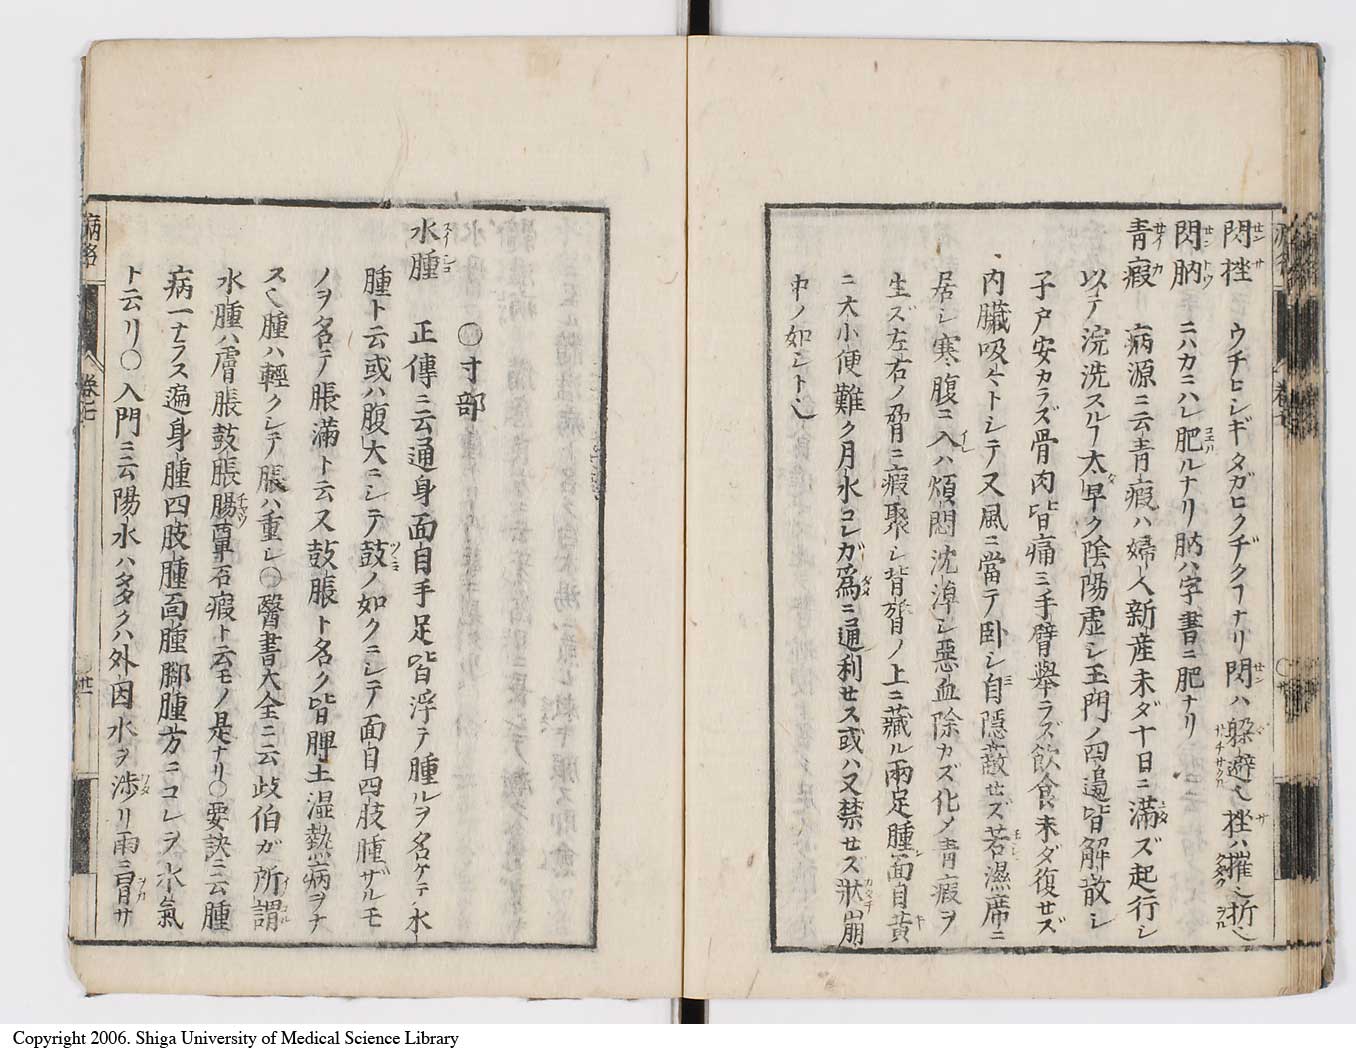 閃挫 ウチヒシギタガヒクヂクヿナリ閃ハ躱避也挫ハ摧也折也
閃肭 ニハカニハレ肥ルナリ肭ハ字書ニ肥ナリ
青瘕 病源ニ云青瘕ハ婦人新産未ダ十日ニ満ズ起行シ
以テ浣洗スルヿ太早ク陰陽虚シ玉門ノ四邊皆解散シ
子戸安カラズ骨肉皆痛ミ手臂舉ラズ飲食未ダ復セズ
内臓吸々トシテ又風ニ當テ臥シ自隠蔽セズ若濕席ニ
居シ寒腹ニ入ハ煩悶沈淖シ惡血除カズ化メ青瘕ヲ
生ズ左右ノ脅ニ瘕聚シ背膂ノ上ニ藏ル兩足腫面目黄
ニ大小便難ク月水コレガ為ニ通利セス或ハ又禁セズ狀崩
中ノ如シト也
〇寸部
水腫 正傳ニ云通身面目手足皆浮テ腫ルヲ名ケテ水
腫ト云或ハ腹大ニシテ鼓ノ如クニシテ面目四肢腫ザルモ
ノヲ名テ脹滿ト云ス鼓脹ト名ク皆脾土湿熱病ヲナ
ス也腫ハ輕クシテ脹ハ重シ〇醫書大全ニ云歧伯ガ所謂
水腫ハ膚脹鼓脹腸覃石瘕ト云モノ是ナリ〇要訣ニ云腫
病一ナラス遍身腫四肢腫面腫脚腫方ニコレヲ水氣
ト云リ〇入門ニ云陽水ハ多クハ外因水ヲ渉リ雨ニ冒サ
病名 巻七 廿一
Copyright 2006. Shiga University of Medical Science Library